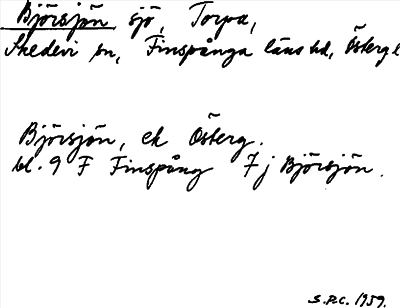 Björsjön sjö, Torpa,
Skedevi sn, Finspånga läns hd, Österg
Björsjön, ek Österg.
bl. 9 F Finspång 7 j Björsjön.
S.P.C. 1959.